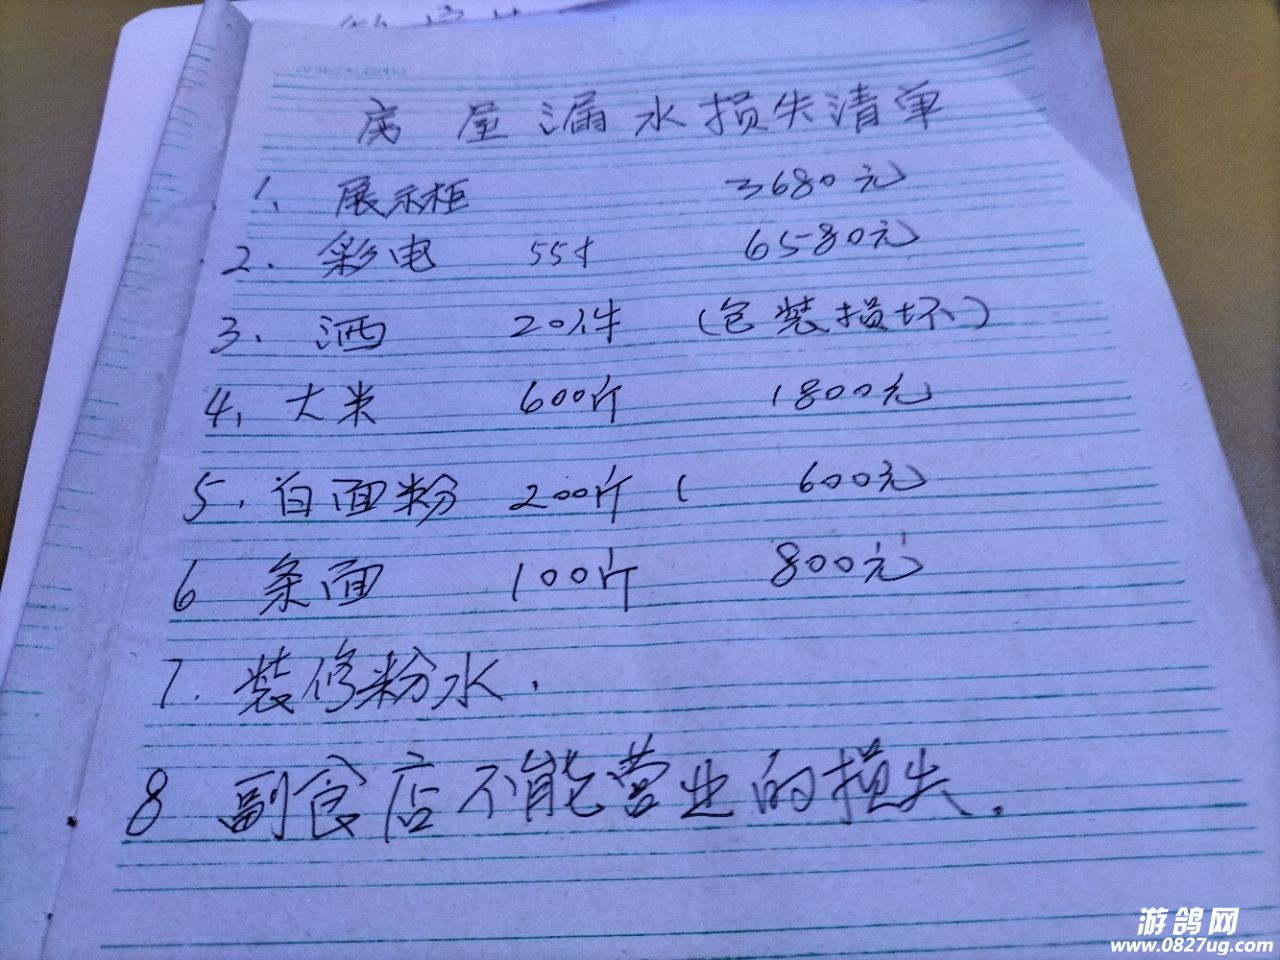 房屋漏水损失清单
1、展示柜 3680元
2. 彩电 55寸 6580元
3、酒 20件 (包装损坏)
4、大米 600斤 1800元
5、白面粉 200斤 ( 600元
6 条面 100斤 800元
7. 装修粉水.
8 副食店不能营业的损失.
游鸽网
www.0827ug.com